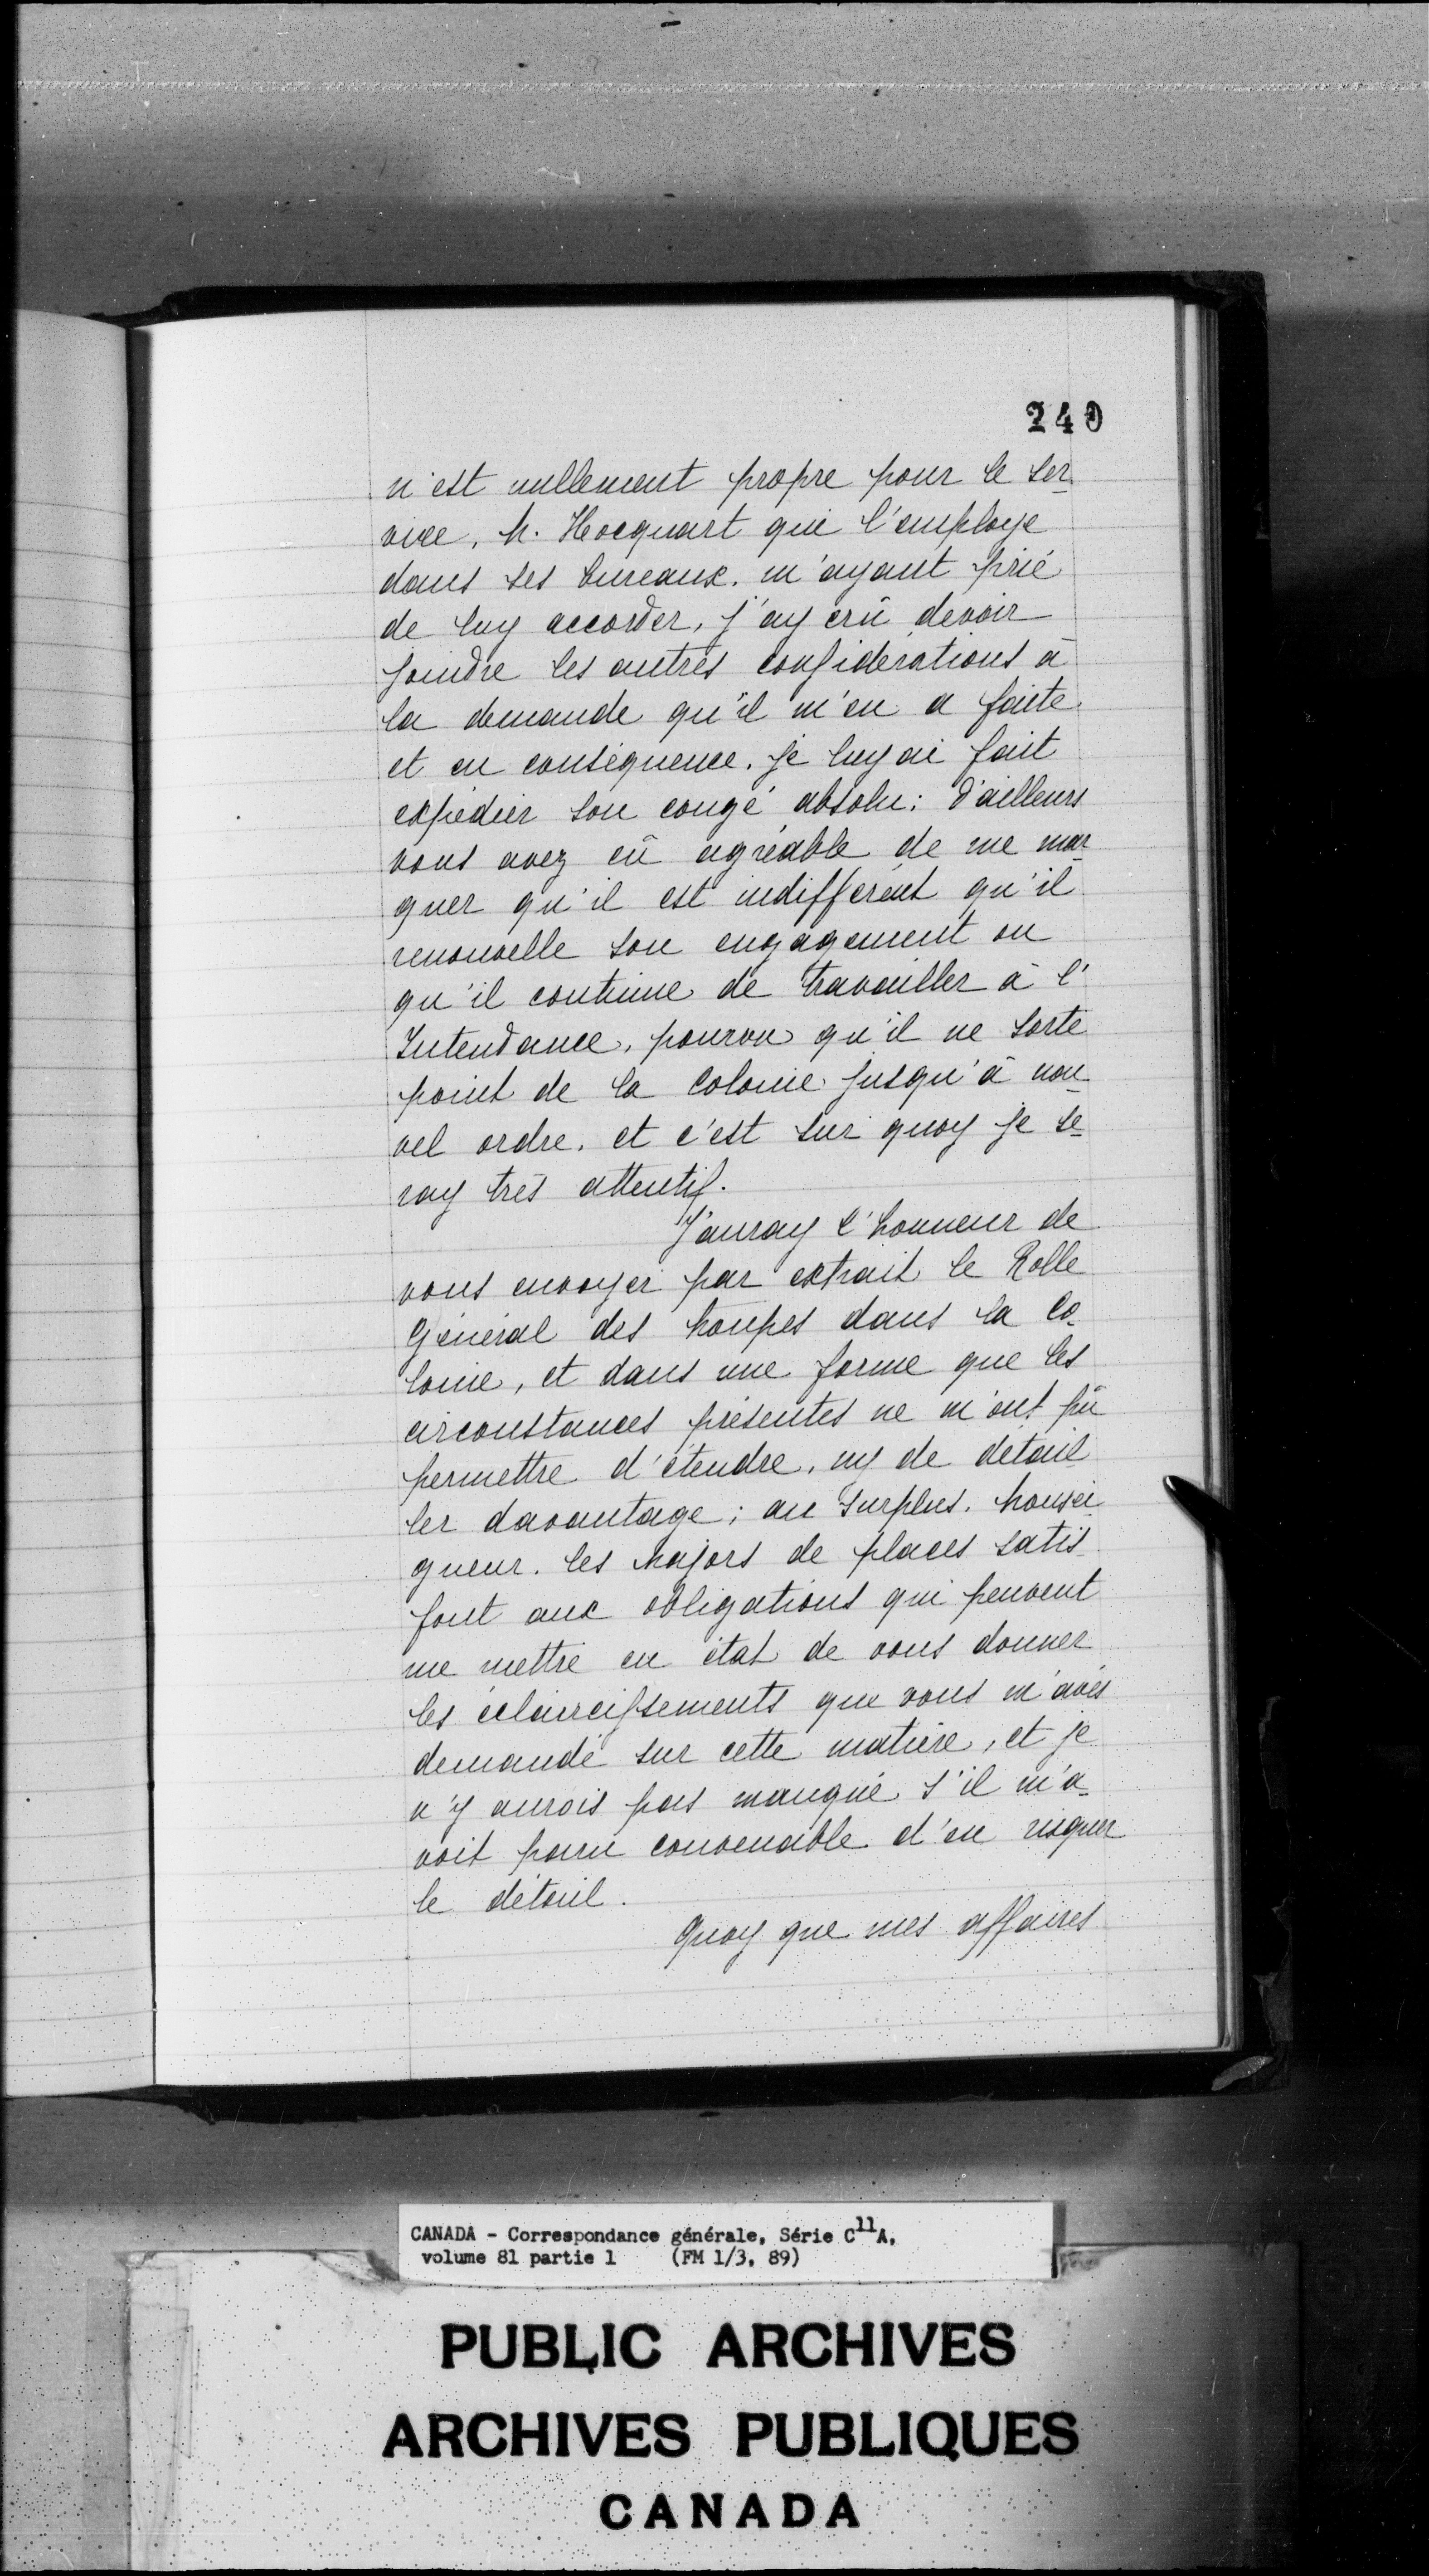 240
n'est nullement propre pour le ser-
vice, M. Hocquart qui l'employe
dans ses bureaux. m'ayant prié
de luy accorder, j'ay crû devoir
joindre les autres considérations à
la demande qu'il m'en a faite
et en conséquence. je luy ai fait
expédier son congé absolu: d'ailleurs
vous avez eû agréable de me mar-
quer qu'il est indifférent qu'il
renouvelle son engagement ou
qu'il continue de travailler à l'
Intendance, pourvu qu'il ne sorte
point de la Colonie jusqu'à nou-
vel ordre. et c'est sur quoy je se-
ray très attentif.
J'auray l'honneur de
vous envoyer par extrait le Rolle
Général des troupes dans la Co-
lonie, et dans une forme que les
circonstances présentes ne m'ont pû
permettre d'étendre, ny de détail-
ler davantage; au surplus. Monsei-
gneur. les Majors de places satis-
font aux obligations qui peuvent
me mettre en état de vous donner
les éclaircissements que vous m'avés
demandé sur cette matière, et je
n'y aurois pas manqué s'il m'a-
voit paru convenable d'en risquer
le détail.
Quoy que mes affaires
CANADA - Correspondance générale, Série C11A,
volume 81 partie 1 (FM 1/3, 89)
PUBLIC ARCHIVES
ARCHIVES PUBLIQUES
CANADA